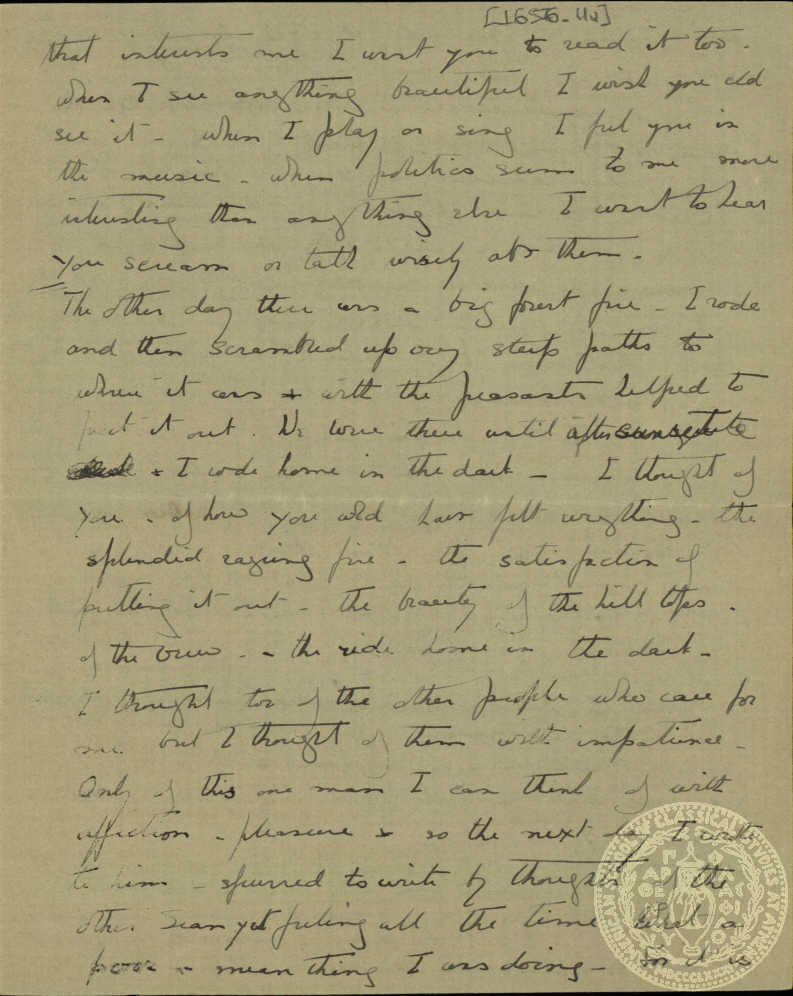 [1656-11v]
that interests me I want you to read it too -
when I see anything beautiful I wish you cld
see it - when I play or sing I feel you in
the music - when politics seem to me more
interesting than anything else I want to hear
you scream or talk wisely abt them -
The other day there was a big forest fire - I rode
and then scrambled up very steep paths to
where it was & with the peasants helped to
put it out. We were there until after sunset
& I rode home in the dark - I thought of
you - of how you wld have felt everything - the
splendid raging fire - the satisfaction of
putting it out - the beauty of the hill tops -
of the view - - the ride home in the dark -
I thought too of the other people who care for
me but I thought of them with impatience -
Only of this one man I can think of with
affection - pleasure & so the next day I wrote
to him - spurred to write by thoughts of the
other Sean yet feeling all the time what a
poor & mean thing I was doing - for it is
AMERICAN SCHOOL OF CLASSICAL STUDIES AT ATHENS
MDCCCLXXXI